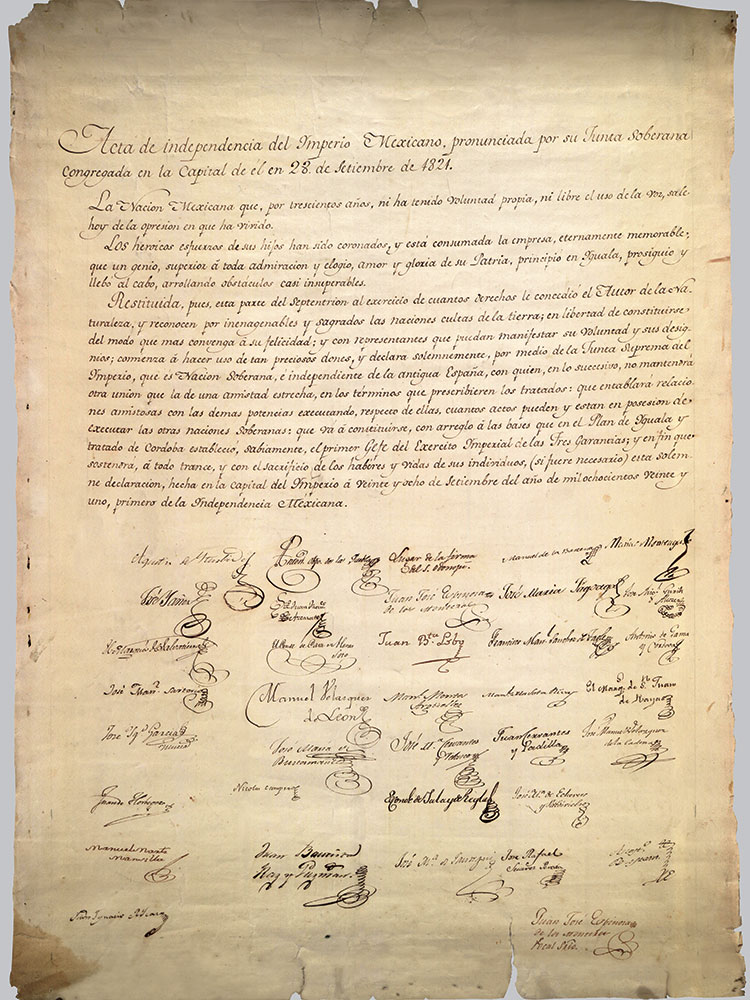 Acta de independencia del Ymperio Mexicano, pronunciada por su Junta Soberana
congregada en la Capital de el en 28 de Setiembre de 1821.
La Nacion Mexicana que, por trescientos años, ni ha tenido voluntad propia, ni libre el uso de la voz, sale
hoy de la opresion en que ha vivido.
Los heroicos esfuerzos de sus hijos han sido coronados, y está consumada la empresa, eternamente memorable,
que un genio, superior á toda admiracion y elogio, amor y gloria de su Patria, principió en Iguala, prosiguio y
llebó al cabo, arrollando obstáculos casi insuperables.
Restituida, pues, esta parte del Septentrion al exercicio de cuantos derechos le concedió el Autor de la Na-
turaleza, y reconocen por inenagenables y sagrados las naciones cultas de la tierra; en libertad de constituirse
del modo que mas convenga á su felicidad; y con representantes que puedan manifestar su voluntad y sus desig-
nios; comienza á hacer uso de tan preciosos dones, y declara solemnemente, por medio de la Junta Suprema del
Ymperio, que es Nacion Soberana, é independiente de la antigua España, con quien, en lo succesivo, no mantendrá
otra union que la de una amistad estrecha, en los términos que prescribieren los tratados: que entablará relacio-
nes amistosas con las demas potencias executando, respecto de ellas, cuantos actos pueden y estan en posesion de
executar las otras naciones Soberanas: que vá á constituirse, con arreglo á las bases que en el Plan de Yguala y
tratado de Cordoba estableció, sabiamente, el primer Gefe del Exercito Imperial de las Tres Garantias; y en fin que
sostendrá, á todo trance, y con el sacrificio de los habéres y vidas de sus individuos, (si fuere necesario) esta solem-
ne declaracion, hecha en la capital del Ymperio á veinte y ocho de Setiembre del año de mil ochocientos veinte y
uno, primero de la Independencia Mexicana.
Lugar de la firma
Manuel de la
José Yañez
Juan José Espinosa
de los Monteros
José Maria Fagoaga
Juan B.ta Lobo
Francisco Man.l Sanchez de Tagle
Antonio de Gama
y Cordova
José Man.l Sartorio
Manuel Velazquez
de León
Man.l Montes
Arguelles
El Marq.s de S.n Juan
de Rayas
José Ygn.o Garcia
José Maria de
Bustamante
José M.a Cervantes
y Velasco
Juan Cervantes
y Padilla
José Manuel Velazquez
de la Cadena
Juan de Horbegoso
Nicolas Campero
El conde de Jala y de Regla
José M.a de Echevers
y Valdivielso
Manuel Martz
Mansilla
Juan Bautista
Raz y Guzman
José M.a de Jauregui
José Rafael
Suarez Pereda
Juan José Espinosa
de los Monteros
Vocal Srio.